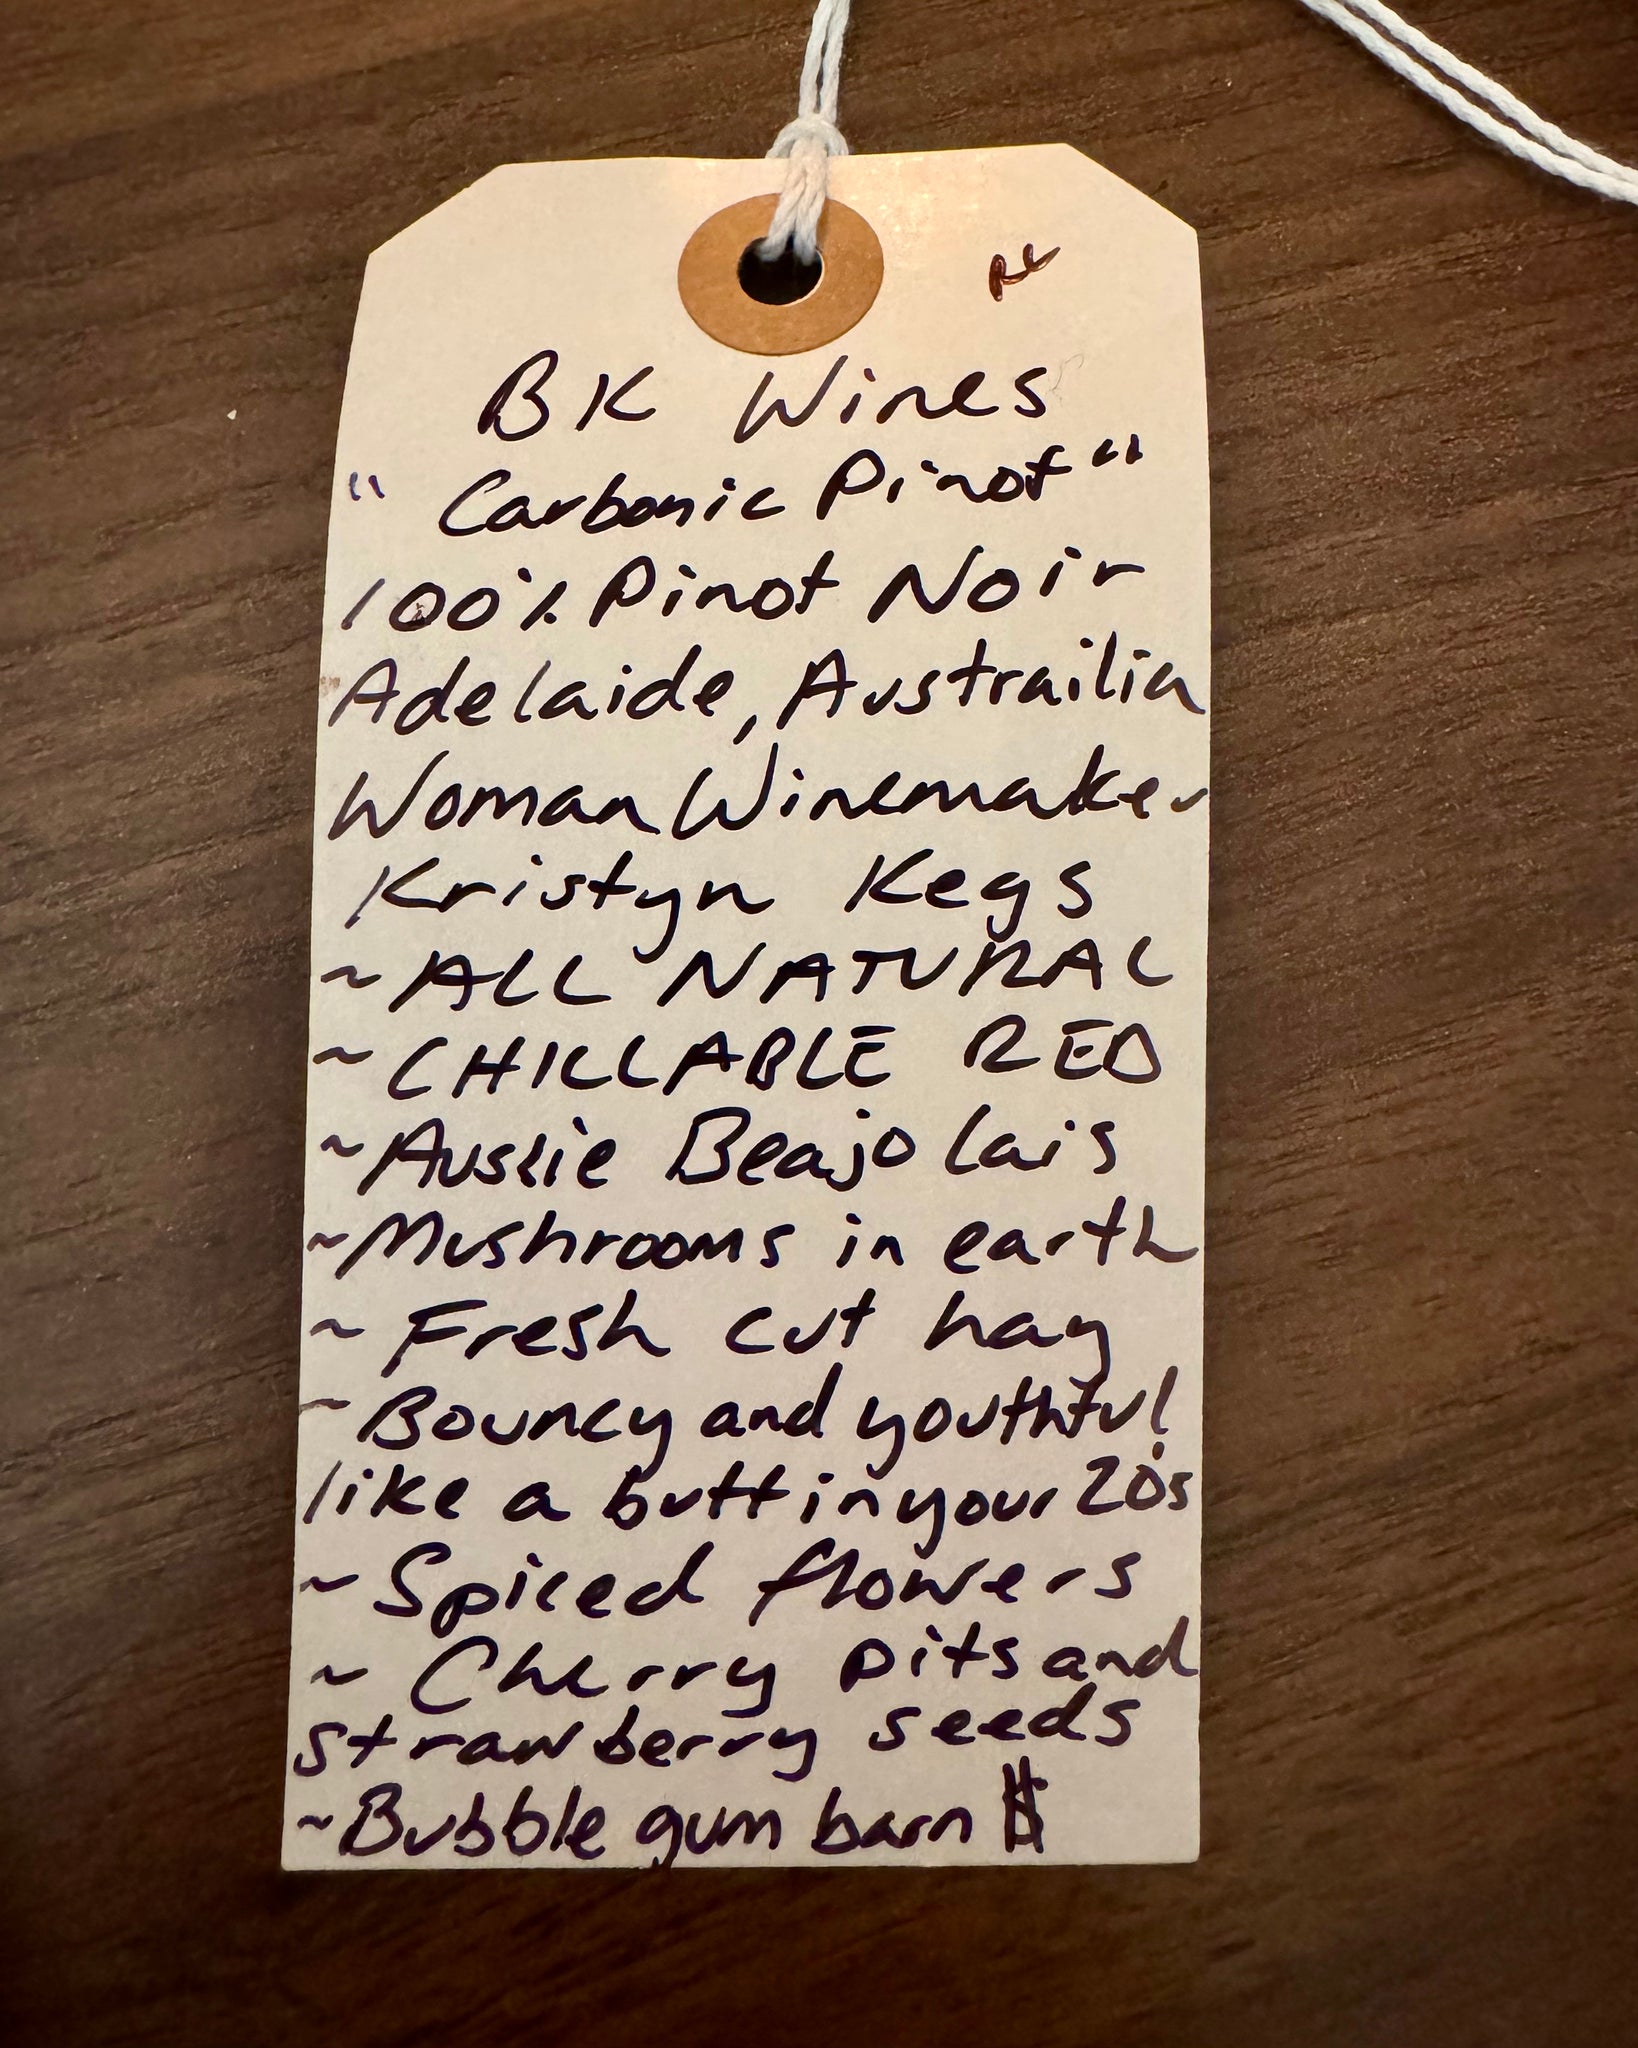 BK Wines
"Carbonic Pinot"
100% Pinot Noir
Adelaide, Austrailia
Woman Winemaker
Kristyn Kegs
~ ALL NATURAL
~ CHILLABLE RED
~ Aussie Beajolais
~ Mushrooms in earth
~ Fresh cut hay
~ Bouncy and youthful
like a butt in your 20's
~ Spiced flowers
~ Cherry pits and
strawberry seeds
~ Bubble gum barn $